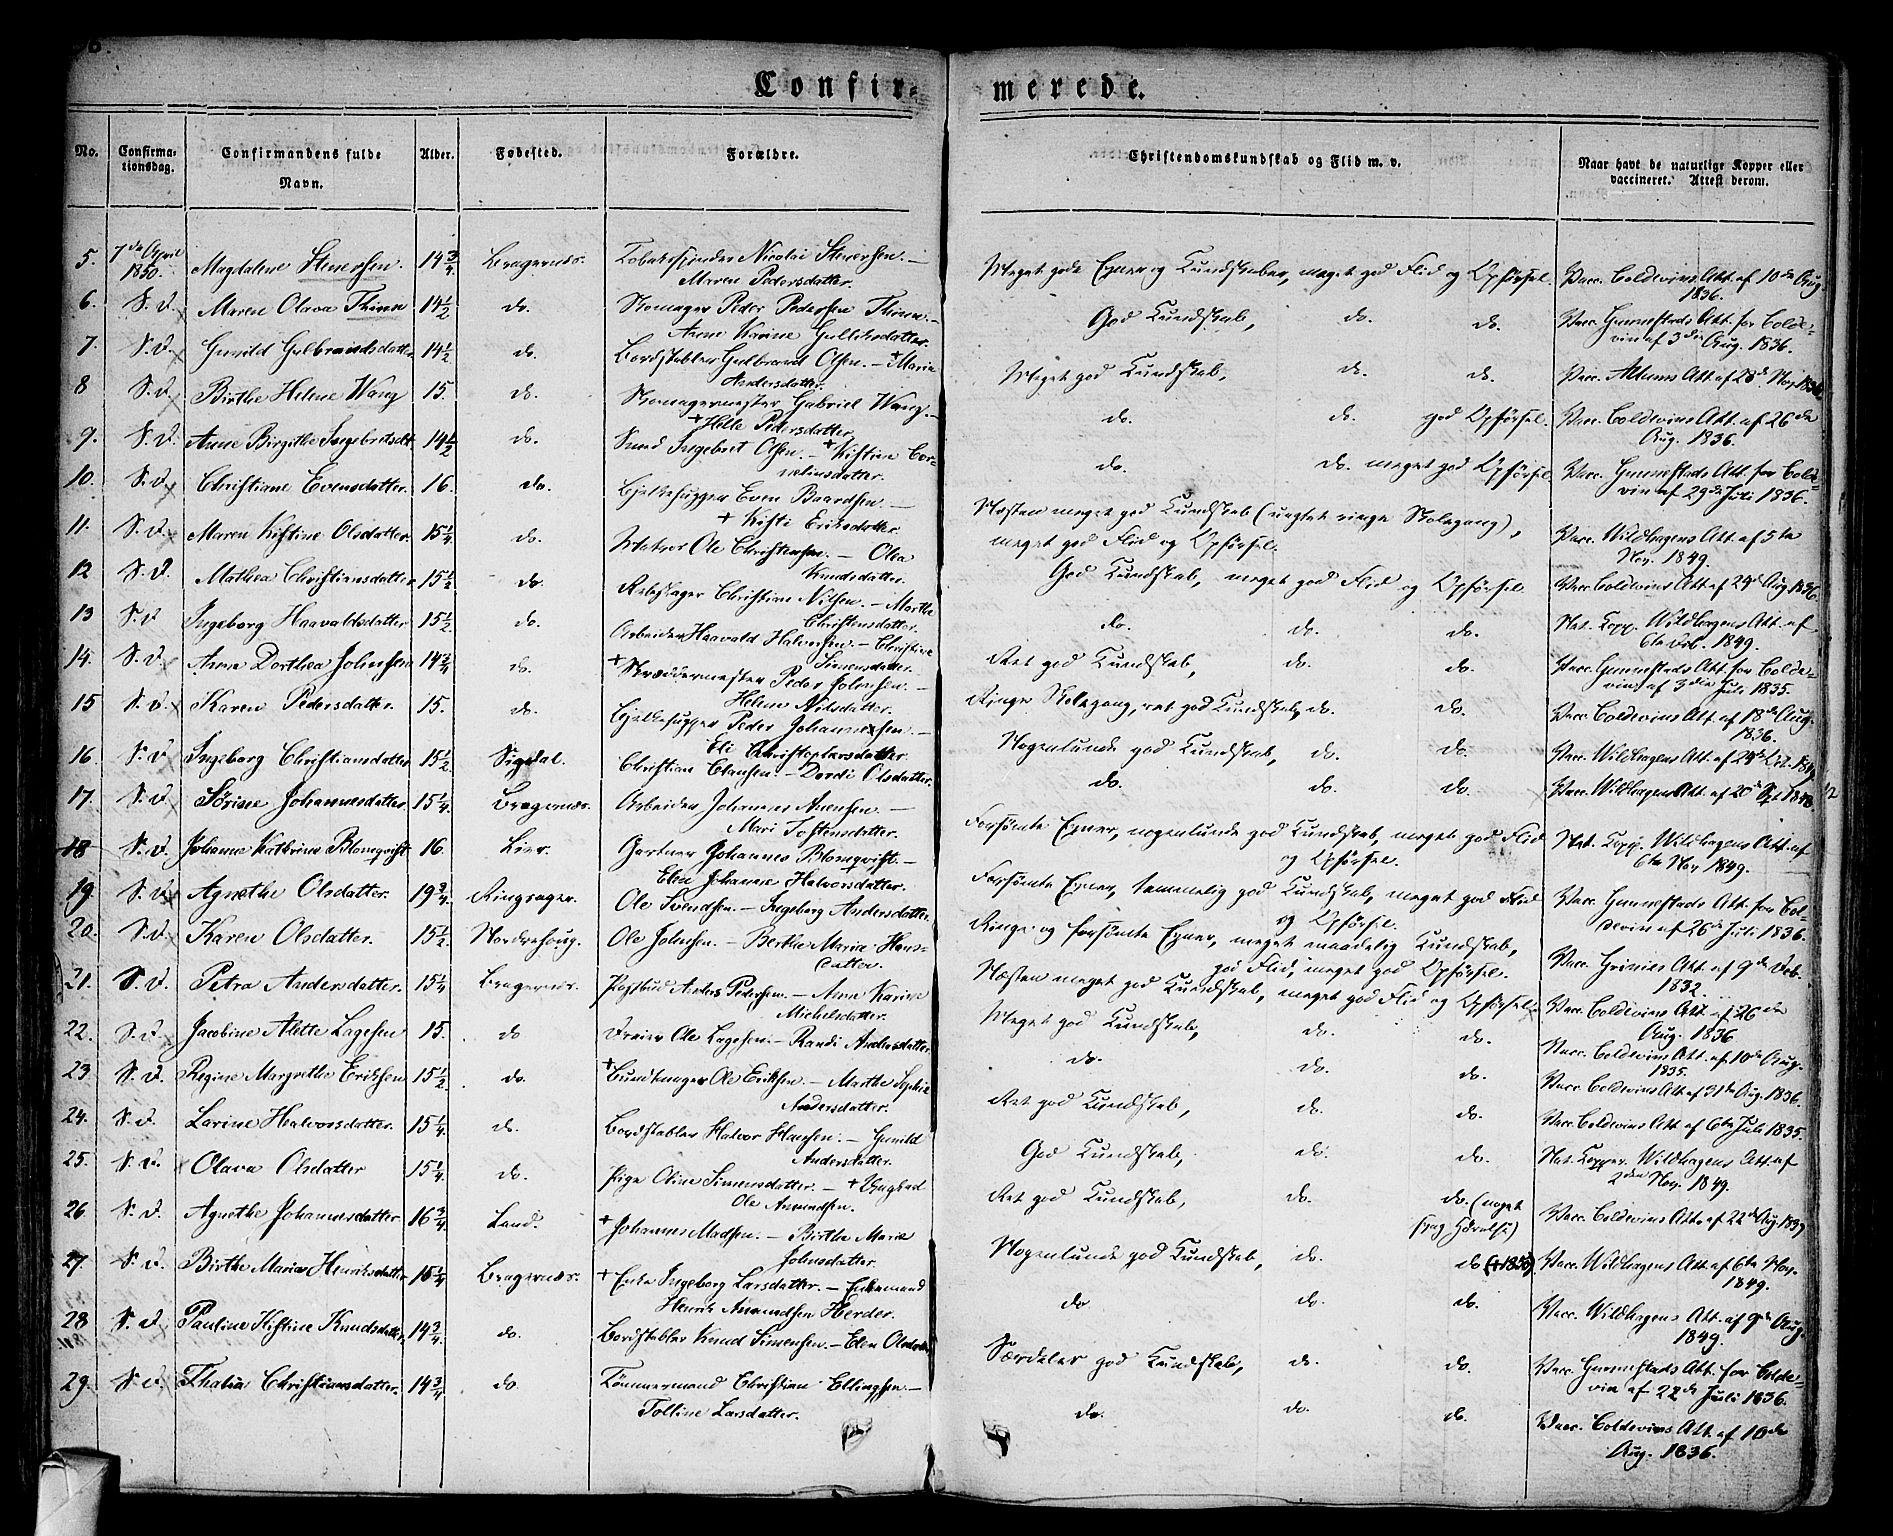 Confir-
merede.
No. Confirma-tionsdag. Confirmandens fulde Navn. Alder. Fødested. Forældre. Christendomskundskab og Flid m. v. Naar havt de naturlige Kopper eller vaccineret. Attest derom.
5. 7de April 1850. Magdalene Stenersen. 14 3/4 Bragernæs. Tobaksspinder Nicolai Stenersen. — Maren Pedersdatter. Meget gode Evner og Kundskaber, meget god Flid og Opførsel. Vacc. Coldevins Att. af 10de Aug. 1836.
6. S. D. Maren Olava Thinen 14 1/2 do. Skomager Peder Pedersen Thinen. — Anne Karine Gulliksdatter. God Kundskab, do. do. Vacc. Gunnestads Att. for Colde-vin af 3die Aug. 1836.
7. S. D. Gunild Gulbrandsdatter 14 1/2 do. Bordstabler Gulbrand Olsen. — + Maria Andersdatter. Meget god Kundskab, do. do. Vacc. Att. af 28de Nov. 1836
8 S. D. Birthe Helene Wang 15. do. Skomagermester Gabriel Wang. — + Helle Pedersdatter. do. do. god Opførsel. Vacc. Coldevins Att. af 26de Aug. 1836.
9. S. D. Anne Birgithe Ingebretsdt. 14 1/2 do. Smed Ingebret Olsen. — + Kistine Cor-neliusdatter. do. do. meget god Opførsel Vacc. Gunnestads Att. for Colde-vin af 29de Juli 1836.
10. S. D. Christiane Evensdatter. 16. do. Bjelkehugger Even Baardsen. — + Kisti Eriksdatter. Næsten meget god Kundskab (uagtet ringe Skolegang), meget god Flid og Opførsel. Vacc. Wildhagens Att. af 5te Nov. 1849.
11. S. D. Maren Kistine Olsdatter. 15 1/4. do. Matros Ole Christensen. — Olea Knudsdatter. God Kundskab, meget god Flid og Opførsel. Vacc. Coldevins Att. af 24de Aug. 1836.
12 S. D. Mathea Christiansdatter 15 1/2 do. Rebslager Christian Nilsen. — Marthe Christensdatter. do. do. do. Nat. Kopp. Wildhagens Att. af 6te Feb. 1849.
13 S. D. Ingeborg Haavaldsdatter 15 1/2 do. Arbeider Haavald Halvorsen — Christine Simensdatter. Ret god Kundskab, do. do. Vacc. Gunnestads Att. for Colde-vin af 3die Juli 1835.
14. S. D. Anna Dorthea Johnsen 14 3/4 do. + Skræddermester Peder Johnsen. — Helene Nilsdatter. Ringe Skolegang, ret god Kundskab, do. do. Vacc. Coldevins Att. af 18de Aug. 1836.
15 S. D. Karen Pedersdatter. 15. do. Bjelkehugger Peder Johannesen. — Eli Christophersdatter Nogenlunde god Kundskab, do. do. Vacc. Wildhagens Att. af 24de Oct. 1849
16 S. D. Ingeborg Christiansdatter 15 1/2 Sigdal. Christian Clausen. — Dordi Olsdatter. do. do. do. Vacc. Wildhagens Att. af 20de Spt. 1848
17. S. D. Sørine Johannesdatter 15 1/4 Bragernæs. Arbeider Johannes — Mari Tostensdatter. Forsømte Evner, nogenlunde god Kundskab, meget god Flid og Opførsel. Nat. Kopp. Wildhagens Att. af 6te Nov. 1849.
18 S. D. Johanne Kathrine Blomqvist 16. Lier. Gartner Johannes Blomqvist. — Elen Johanne Halvorsdatter. Forsømte Evner, temmelig god Kundskab, meget god Flid og Opførsel. Vacc. Gunnestads Att. for Col-devin af 26de Juli 1836.
19. S. D. Agnethe Olsdatter. 19 3/4. Ringsager. Ole Svendsen. — Ingeborg Andersdatter. Ringe og forsømte Evner, meget maadelig Kundskab, god Flid, meget god Opførsel. Vacc. Att. af 9de Feb. 1832.
20. S. D. Karen Olsdatter. 15 1/2. Nordrehoug. Ole Johnsen. — Berthe Marie Hans-datter. Næsten meget god Kundskab, meget god Flid og Opførsel. Vacc. Coldevins Att. af 26de Aug. 1836
21. S. D. Petra Andersdatter. 15 1/4 Bragernæs. Postbud Anders Pedersen. — Anne Karine Michelsdatter. Meget god Kundskab, do. do. Vacc. Coldevins Att. af 10de Aug. 1835.
22. S. D. Jacobine Alette Lagesen 15. do Dreier Ole Lagesen. — Randi Andersdatter do. do. do. Vacc. Coldevins Att. af 31te Aug. 1836.
23 S. D. Regine Margrethe Eriksen 15 1/2 do. + Buntmager Ole Eriksen. — Marthe Sophie Andersdatter. Ret god Kundskab, do. do. Vacc. Coldevins Att. af 6te Juli 1835.
24. S. D. Larine Halvorsdatter. 15 1/4. do. Bordstabler Halvor Hansen. — Gunild Andersdatter. God Kundskab, do. do. Nat. Kopper. Wildhagens Att. af 2den Nov. 1849.
25. S. D. Olava Olsdatter 15 1/4. do. Pige Oline Simensdatter. — + Ungkarl Ole Amundsen. Ret god Kundskab, do. do. (meget svag Hørelse) Vacc. Coldevins Att. af 22de Aug. 1837
26. S. D. Agnethe Johannesdatter 16 3/4 Land. + Johannes Madsen. — Birthe Marie Johnsdatter. Nogenlunde god Kundskab, do. do (+ 1850). Vacc. Wildhagens Att. af 6te Nov. 1849.
27. S. D. Birthe Marie Henriksdatter 15 1/4 Bragernæs. + Enke Ingeborg Larsdatter. — Enkemand Henrik Amundsen Herder. do do. do. Vacc. Wildhagens Att. af 9de Aug. 1849.
28 S. D. Pauline Kistine Knudsdatter. 14 3/4. do. Bordstabler Knud Simensen. — Elen Olsdatter Særdeles god Kundskab, do. do. Vacc. Gunnestads Att. for Colde-vin af 22de Juli 1836.
29. S. D. Thalia Christiansdatter. 14 3/4 do Tømmermand Christian Ellingsen. — Tolline Larsdatter. do. do. do. Vacc. Coldevins Att. af 10de Aug. 1836.